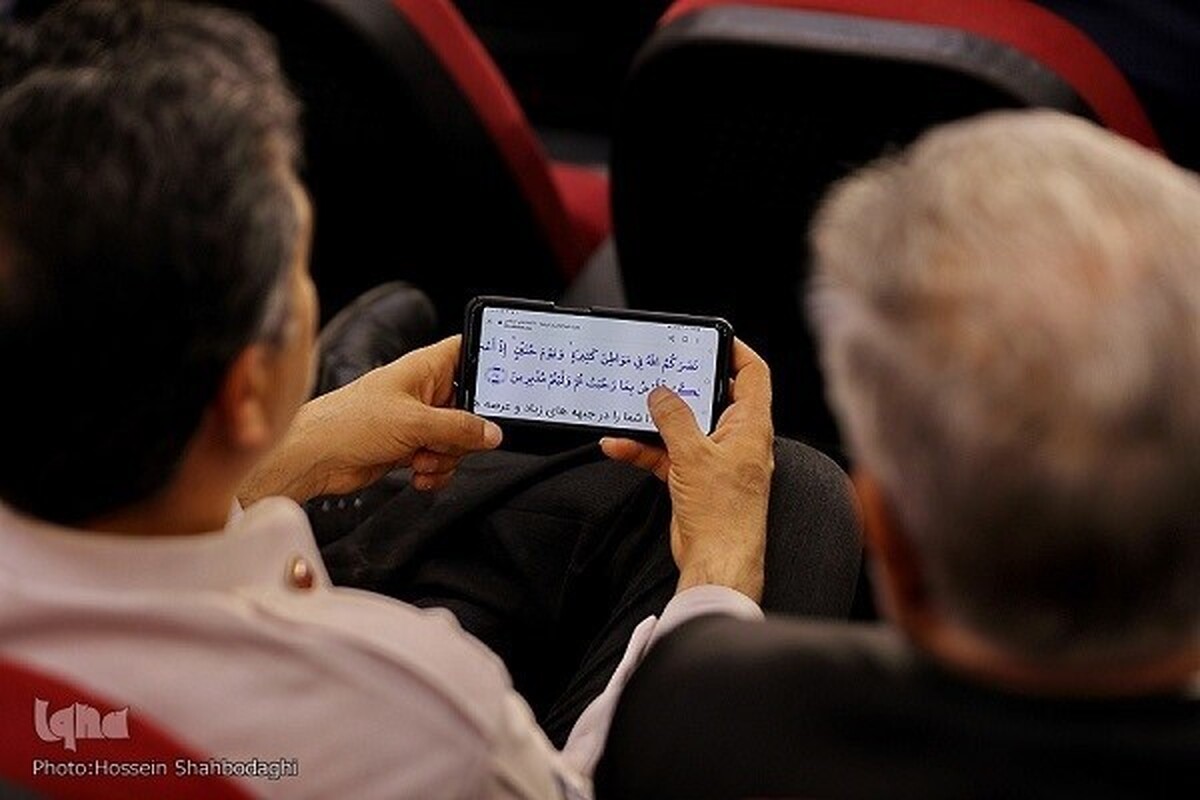 نَصَرَكُمُ اللَّهُ فِي مَوَاطِنَ كَثِيرَةٍ وَيَوْمَ حُنَيْنٍ إِذْ
بِمَا رَحُبَتْ ثُمَّ وَلَّيْتُمْ مُدْبِرِينَ
شما را در جبهه های زیاد و عرصه
Iqna
Photo:Hossein Shahbodaghi